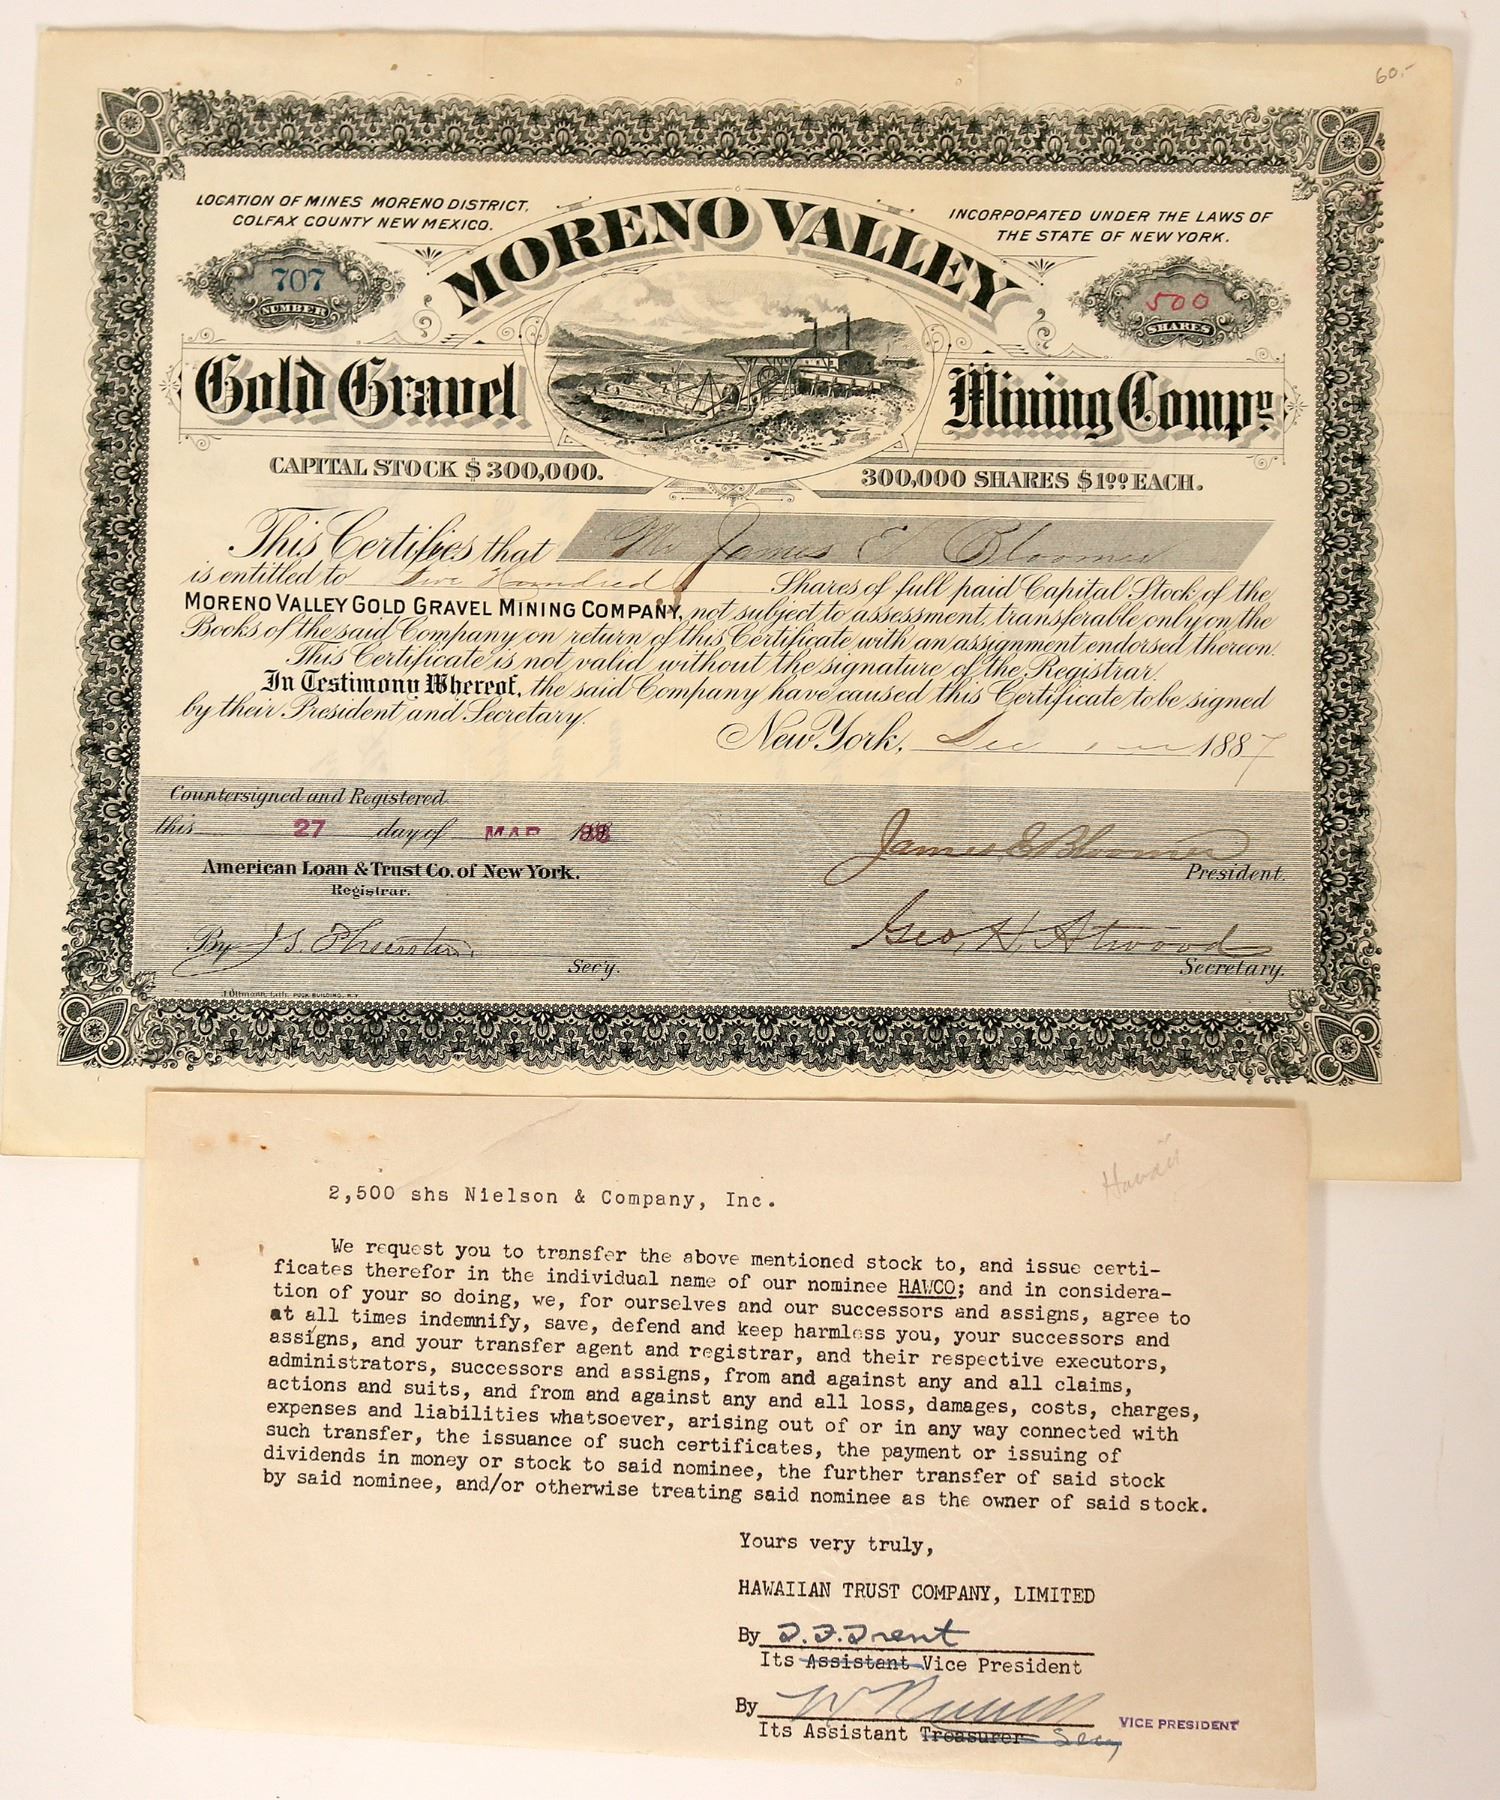 60.-
LOCATION OF MINES MORENO DISTRICT,
COLFAX COUNTY NEW MEXICO.
INCORPOPATED UNDER THE LAWS OF
THE STATE OF NEW YORK.
MORENO VALLEY
707
NUMBER
500
SHARES
Gold Gravel Mining Compy.
CAPITAL STOCK $300,000.
300,000 SHARES $1.00 EACH.
This Certifies that Mr James E Bloomer
is entitled to Five Hundred Shares of full paid Capital Stock of the
MORENO VALLEY GOLD GRAVEL MINING COMPANY, not subject to assessment, transferable only on the
Books of the said Company on return of this Certificate with an assignment endorsed thereon.
This Certificate is not valid without the signature of the Registrar.
In Testimony Whereof, the said Company have caused this Certificate to be signed
by their President and Secretary.
New York, Dec 1887
Countersigned and Registered
this 27 day of MAR 188
American Loan & Trust Co. of New York.
Registrar.
By J S. Thurston, Sec'y.
James E Bloomer
President.
Geo. H. Atwood
Secretary.
J. Ottmann, Lith. PUCK BUILDING, N.Y.
Hawaii
2,500 shs Nielson & Company, Inc.
We request you to transfer the above mentioned stock to, and issue certi-
ficates therefor in the individual name of our nominee HAWCO; and in considera-
tion of your so doing, we, for ourselves and our successors and assigns, agree to
at all times indemnify, save, defend and keep harmless you, your successors and
assigns, and your transfer agent and registrar, and their respective executors,
administrators, successors and assigns, from and against any and all claims,
actions and suits, and from and against any and all loss, damages, costs, charges,
expenses and liabilities whatsoever, arising out of or in any way connected with
such transfer, the issuance of such certificates, the payment or issuing of
dividends in money or stock to said nominee, the further transfer of said stock
by said nominee, and/or otherwise treating said nominee as the owner of said stock.
Yours very truly,
HAWAIIAN TRUST COMPANY, LIMITED
By D.F. Trent
Its Assistant Vice President
By W Russell
VICE PRESIDENT
Its Assistant Treasurer Secy